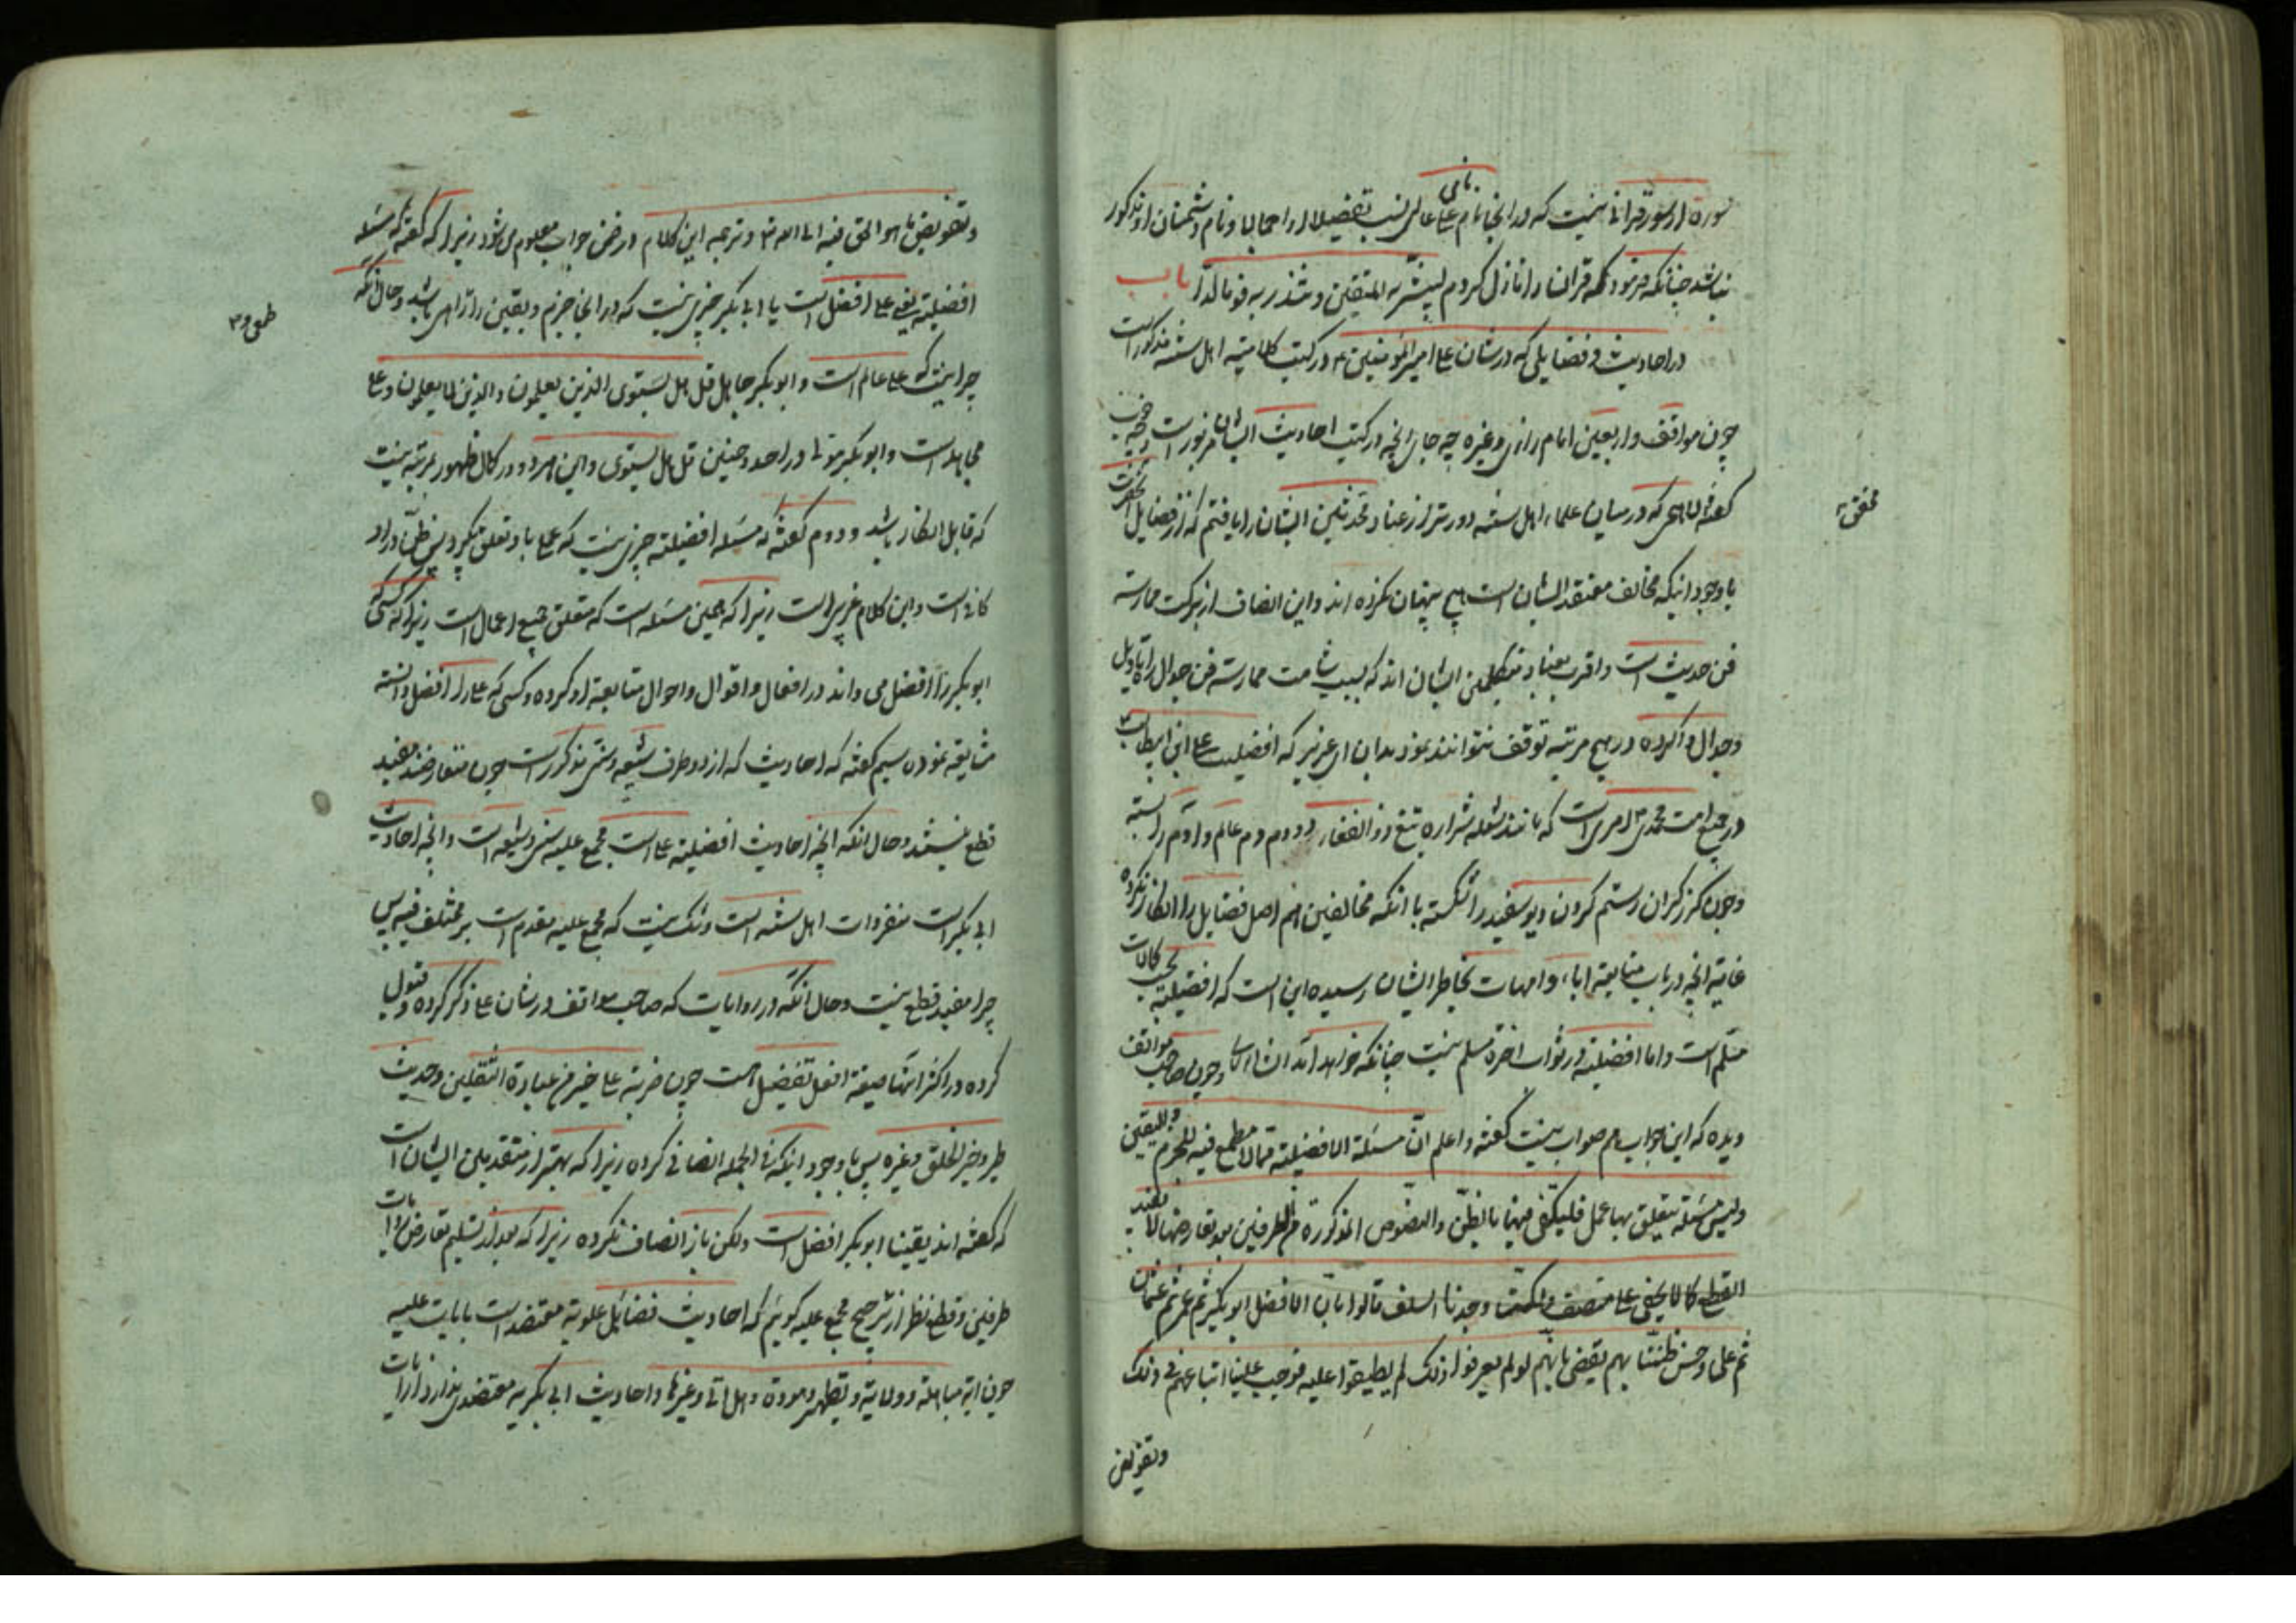 سوره از سور قرآنی نیست که در انجا نام نامی علی عالی نسب تفصیلا او اجمالا و نام دشمنان او مذکور
نباشد چنانکه فرمود که قران را نازل کردم لیبشر به المتقین و تنذر به قوما لدا باب
در احادیث و فضایلی که در شان علی امیرالمؤمنین ع در کتب کلامیه اهل سنه مذکور است
چون مواقف و اربعین امام رازی و غیره چه جای انچه در کتب احادیث ایشان مزبور است
که در میان علماء اهل سنه دورتر از عناد محدثین ایشان را یافتم که از فضایل آنحضرت
با وجود اینکه مخالف معتقد ایشان است هیچ پنهان نکرده اند و این انصاف از برکت ممارسة
فن حدیث است و اقرب بعناد متکلمین ایشان اند که بسبب شامت ممارسة فن جدال راه تاویل
و جدال وا کرده در هیچ مرتبه توقف نتوانند نمود بدان ای عزیز که افضلیت علی ابن ابیطالب
در جمیع امت محمدی امری است که مانند شعله شراره تیغ ذو الفقار در دوم دم عالم و آدم را بسته
و چون گرز گران رستم گردن دیو سفید را شکسته با آنکه مخالفین هم اصل فضایل را انکار نکرده
غایة انچه در باب متابعة اباء و امهات بخاطر ایشان رسیده این است که افضلیة بحسب کمالات
مسلم است و اما افضلیة در ثواب اخرة مسلم نیست چنانکه خواهد آمد انشاء الله و چون صاحب مواقف
دیده که این جواب هم صواب نیست گفته و اعلم ان مسئلة الافضلیة مما لا مطمع فیه للجزم و الیقین
و لیس مسئلة یتعلق بها عمل فلیکتفی فیها بالظن و النصوص المذکورة من الطرفین بعد تعارضها لا یفید
القطع کما لا یخفی علی منصف ولکننا وجدنا السلف قالوا بان الافضل ابو بکر ثم عمر ثم عثمان
ثم علی و حسن ظننا بهم یقضی بانهم لو لم یعرفوا ذلک لم یطبقوا علیه فوجب علینا اتباعهم فی ذلک
و تفویض
و تفویض ما هو الحق فیه الی الله و ترجمه این کلام در ضمن جواب معلوم می شود زیرا که گفته که مسئله
افضلیة یعنی علی افضل است یا ابی بکر چیزی نیست که در انجا جزم و یقین را راهی باشد و حال آنکه
چرا نیست که علی عالم است و ابو بکر جاهل قل هل یستوی الذین یعلمون و الذین لا یعلمون و علی
مجاهد است و ابو بکر در احد و حنین قل هل یستوی و این هر دو در کمال ظهور بمرتبه نیست
که قابل انکار باشد و دوم گفته که مسئله افضلیة چیزی نیست که عملی باو تعلق بگیرد پس ظن در او
کافی است و این کلام غریب است زیرا که همین مسئله است که متعلق جمیع اعمال است زیرا که کسی که
ابو بکر را افضل می داند در افعال و اقوال و احوال متابعة او کرده و کسی که علی را افضل دانسته
مشایعة نموده سیم گفته که احادیث که از دو طرف شیعه و سنی مذکور است چون متعارضند مفید
قطع نیستند و حال انکه انچه احادیث افضلیة علی است مجمع علیه سنی و شیعه است و انچه احادیث
ابی بکر است منفردات اهل سنه است و شک نیست که مجمع علیه مقدم است بر مختلف فیه پس
چرا مفید قطع نیست و حال انکه در روایات که صاحب مواقف در شان علی ذکر کرده و قبول
کرده در اکثر آنها صیغه افعل تفضیل است چون ضربة علی خیر من عبادة الثقلین و حدیث
طیر و خیر الخلق و غیره پس با وجود اینکه فی الجمله انصافی کرده زیرا که بهتر از متقدمین ایشان است
که گفته اند یقینا ابو بکر افضل است ولکن باز انصاف نکرده زیرا که بعد از تسلیم تعارض روایات
طرفین و قطع نظر از ترجیح مجمع علیه گوییم که احادیث فضائل علویة معتضد است بآیات علیه
چون ایه مباهله و ولایة و تطهیر و مودة و هل اتی و غیرها و احادیث ابی بکریه معتضدی ندارد از آیات